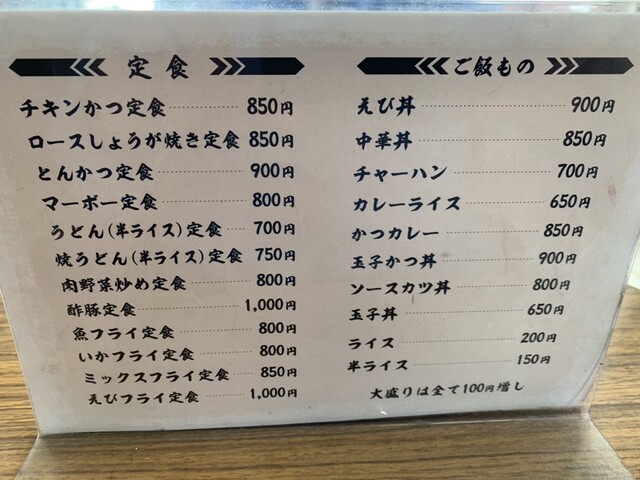 定食
チキンかつ定食 850円
ロースしょうが焼き定食 850円
とんかつ定食 900円
マーボー定食 800円
うどん(半ライス)定食 700円
焼うどん(半ライス)定食 750円
肉野菜炒め定食 800円
酢豚定食 1,000円
魚フライ定食 800円
いかフライ定食 800円
ミックスフライ定食 850円
えびフライ定食 1,000円
ご飯もの
えび丼 900円
中華丼 850円
チャーハン 700円
カレーライス 650円
かつカレー 850円
玉子かつ丼 900円
ソースカツ丼 800円
玉子丼 650円
ライス 200円
半ライス 150円
大盛りは全て100円増し